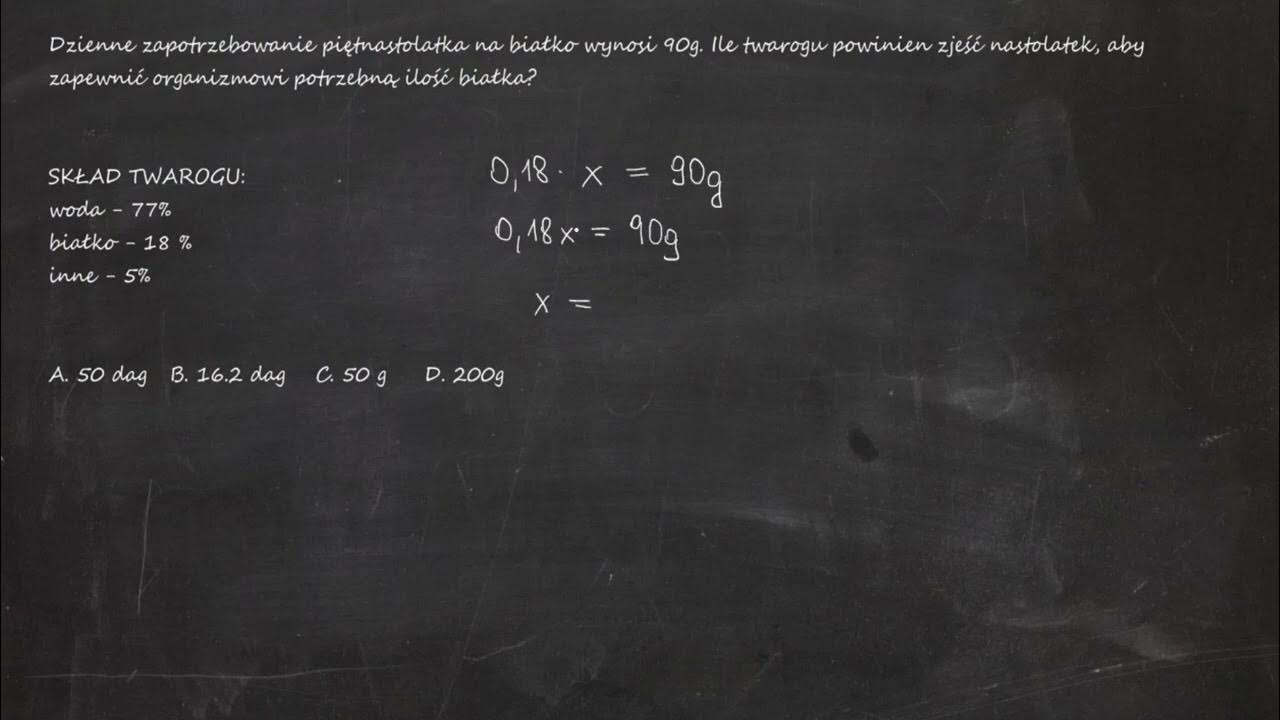 Dzienne zapotrzebowanie piętnastolatka na białko wynosi 90g. Ile twarogu powinien zjeść nastolatek, aby
zapewnić organizmowi potrzebną ilość białka?
SKŁAD TWAROGU:
woda - 77%
białko - 18 %
inne - 5%
0,18 · x = 90g
0,18x· = 90g
x =
A. 50 dag B. 16.2 dag C. 50 g D. 200g